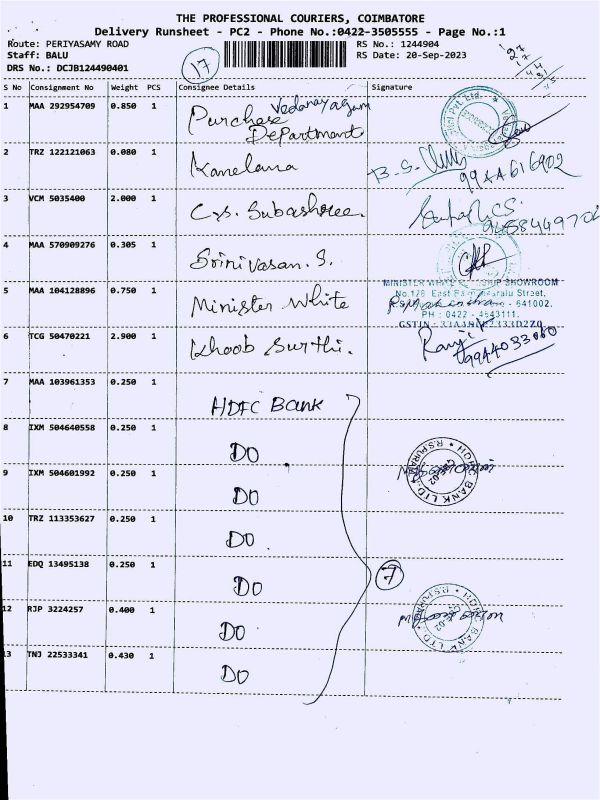 THE PROFESSIONAL COURIERS, COIMBATORE
Delivery Runsheet - PC2 - Phone No.:0422-3505555 - Page No.:1
Route: PERIYASAMY ROAD
Staff: BALU
DRS No.: DCJB124490401
17
RS No.: 1244904
RS Date: 20-Sep-2023
S No Consignment No Weight PCS Consignee Details Signature
1 MAA 292954709 0.850 1 Purchase Vedanayagam
Department
2 TRZ 122121063 0.080 1 Kanelana
B.S.
9944616902
3 VCM 5035400 2.000 1 C.s. Subashree.
4 MAA 570909276 0.305 1 Srinivasan. S.
5 MAA 104128896 0.750 1 Minister White
MINISTER WHITE SHOWROOM
No.128 East Street,
- 641002.
PH : 0422 - 4543111.
6 TCG 50470221 2.900 1 Khoob Surthi.
7 MAA 103961353 0.250 1 HDFC Bank
8 IXM 504640558 0.250 1 DO
9 IXM 504601992 0.250 1 DO
10 TRZ 113353627 0.250 1 DO
11 EDQ 13495138 0.250 1 DO
7
12 RJP 3224257 0.400 1 DO
13 TNJ 22533341 0.430 1 DO
HDFC BANK LTD
HDFC BANK LTD